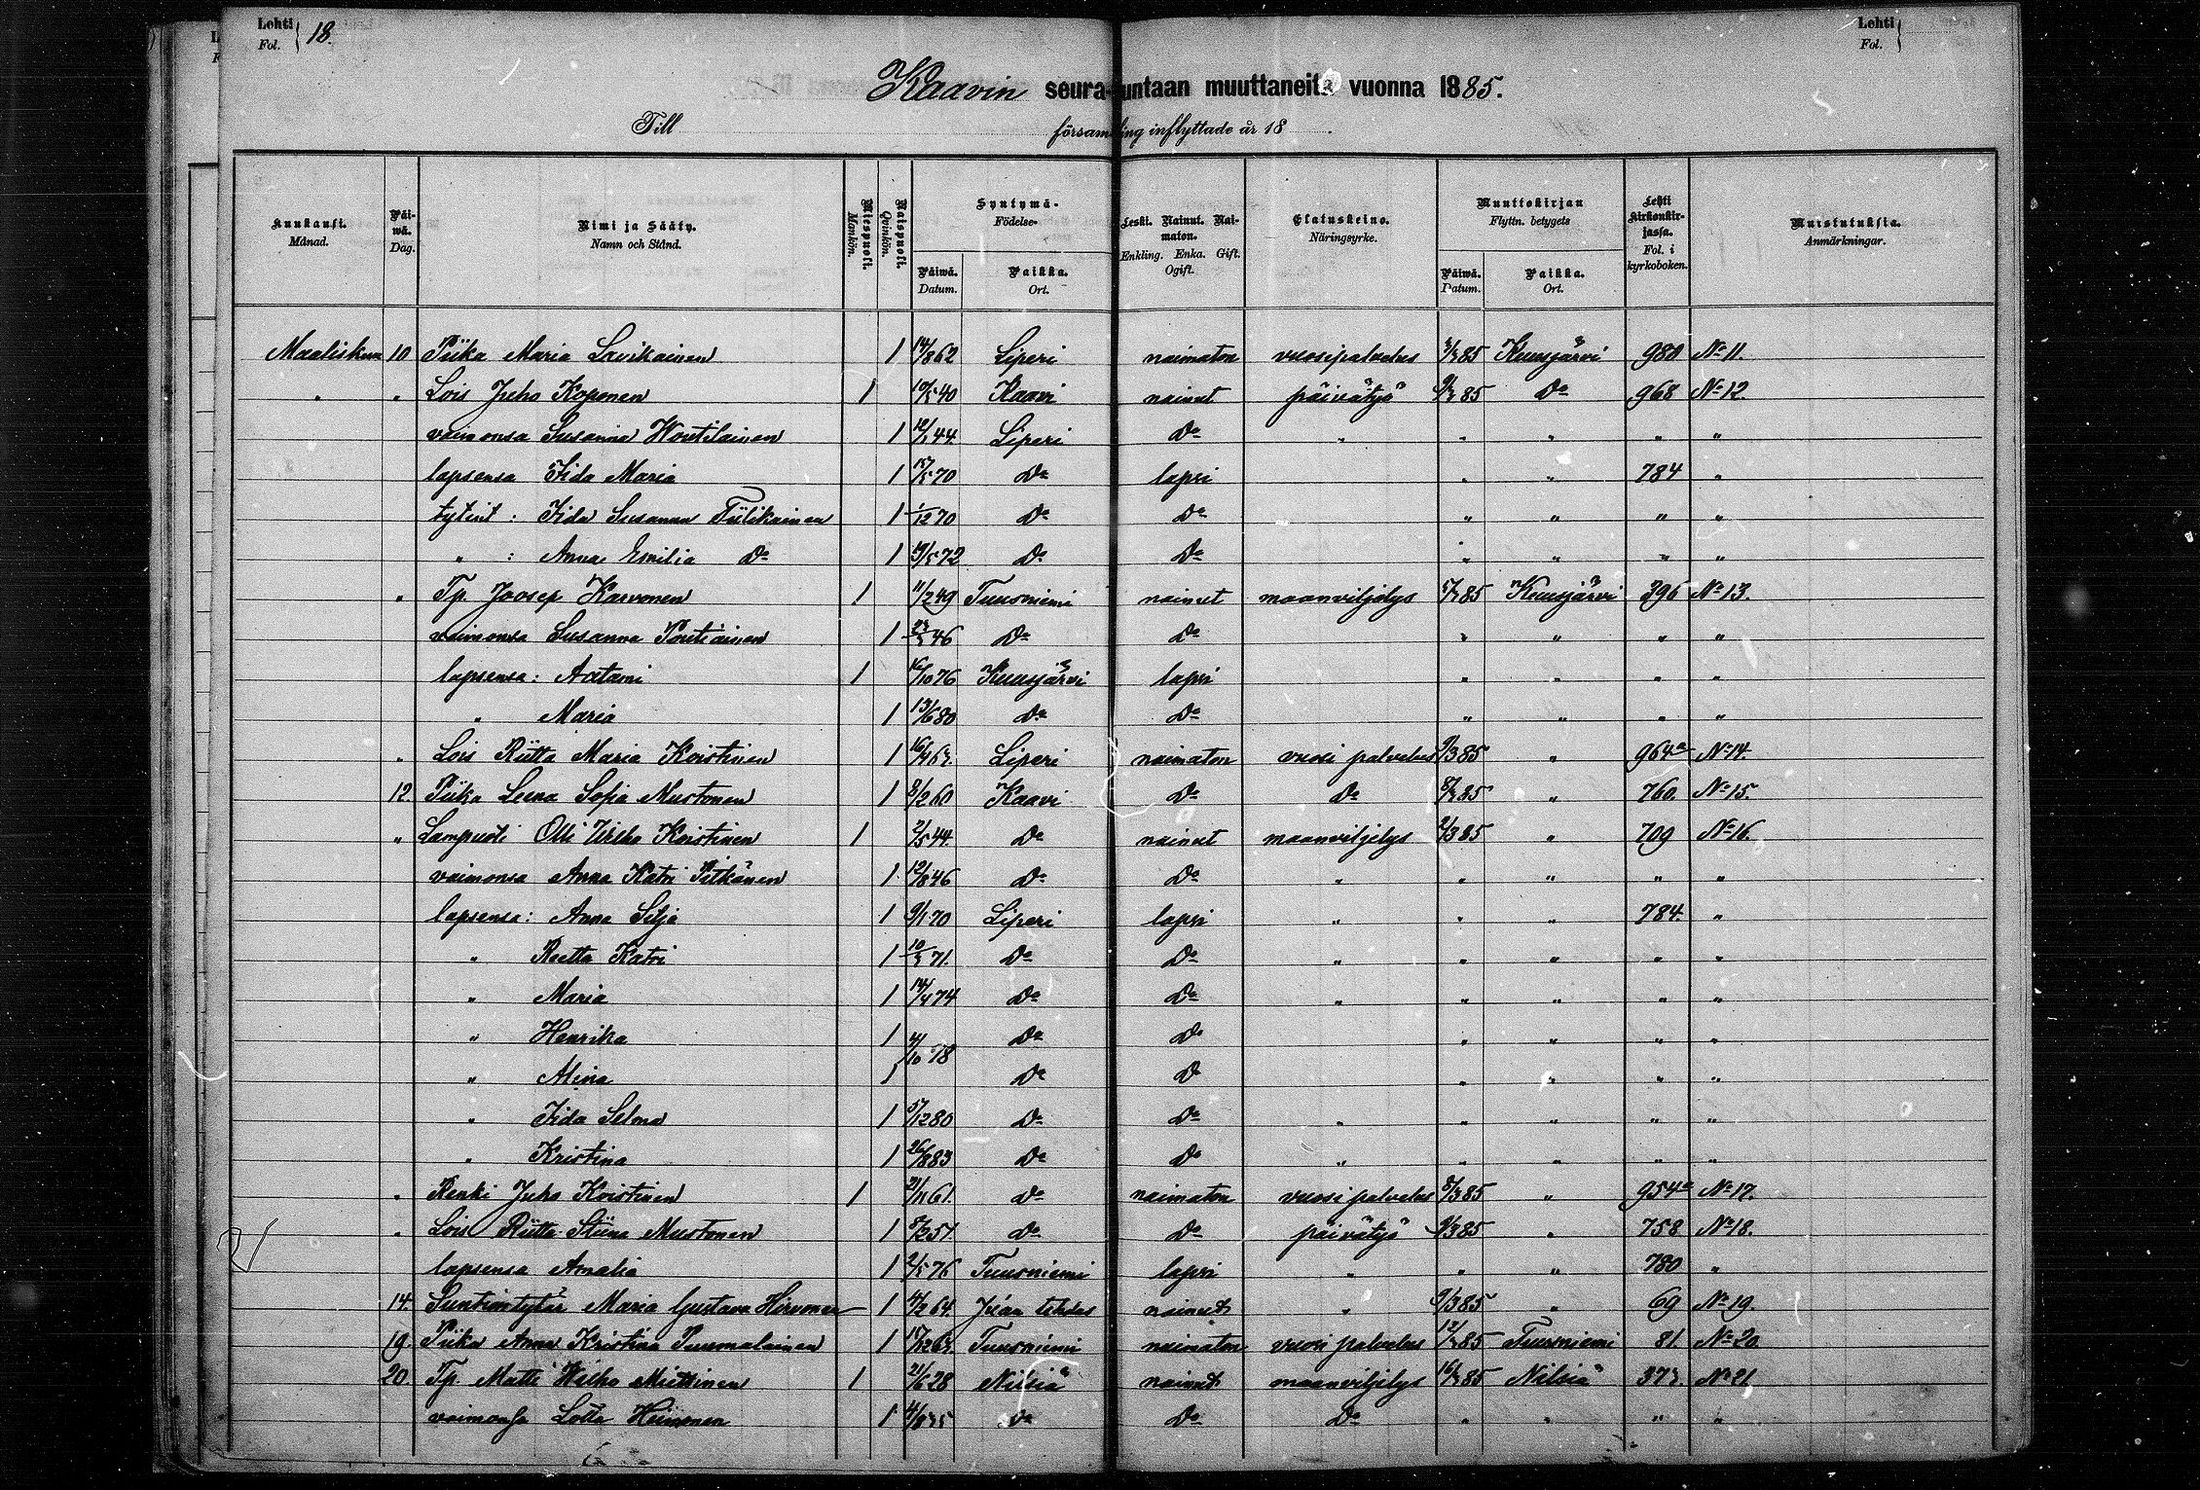 Lehti Fol. 18. Lehti Fol.
Kaavin seurakuntaan muuttaneita vuonna 1885.
Till församling inflyttade år 18 .
Kuukausi. Månad. Päiwä. Dag. Nimi ja Sääty. Namn och Stånd. Miespuoli. Mankön. Naispuoli. Qvinkön. Syntymä- Födelse- Päiwä. Datum. Paikka. Ort. Leski. Nainut. Naimaton. Enkling. Enka. Gift. Ogift. Elatuskeino. Näringsyrke. Muuttokirjan Flyttn. betygets Päiwä. Datum. Paikka. Ort. Lehti kirkonkirjassa. Fol. i kyrkoboken. Muistutuksia. Anmärkningar.
Maaliskuu 10 Piika Maria Lavikainen 1 14/8 62 Liperi naimaton vuosipalvelus /3 85 Kuusjärvi 980 No 11.
" " Lois Juho Koponen 1 19/5 40 Kaavi nainut päivätyö 9/3 85 Do 968 No 12.
vaimonsa Susanna Woutilainen 1 12/1 44 Liperi Do " " " " "
lapsensa Iida Maria 1 15/5 70 Do lapsi " " 784 "
tytint : Iida Susanna Tiilikainen 1 1/12 70 Do Do " " " "
" : Anna Emilia Do 1 19/5 72 Do Do " " " "
" Tp. Joosep Karvonen 1 11/2 49 Tuusniemi nainut maanviljelys /3 85 Kuusjärvi 396 No 13.
vaimonsa Susanna Pontiainen 1 23/3 46 Do Do " " " "
lapsensa : Aatami 1 16/10 76 Kuusjärvi lapsi " " " "
" Maria 1 13/6 80 Do Do " " " "
" Lois Riitta Maria Koistinen 1 16/4 63. Liperi naimaton vuosi palvelus 9/3 85 " 964a No 14.
12. Piika Leena Sofia Mustonen 1 8/2 60 Kaavi Do Do 8/3 85 " 760. No 15.
" Lampuoti Olli Wilho Koistinen 1 2/5 44. Do nainut maanviljelys 9/3 85 " 709 No 16.
vaimonsa Anna Katri Pitkänen 1 12/8 46 Do Do " " " " "
lapsensa : Anna Silja 1 9/1 70 Liperi lapsi " " " 784. "
" Reetta Katri 1 10/3 71. Do Do " " " " "
" Maria 1 14/4 74 Do Do " " " " "
" Henrika 1 4/10 78 Do Do " " " "
" Alina 1 Do Do " " " "
" Iida Selma 1 5/12 80 Do Do " " " " "
" Kristina 1 26/8 83 Do Do " " " " "
" Renki Juho Koistinen 1 21/11 61. Do naimaton vuosi palvelus 8/3 85 " 954a No 17.
" Lois Riitta Stiina Mustonen 1 8/2 51. Do Do päivätyö 9/3 85 " 758 No 18.
lapsensa Amalia 1 2/5 76 Tuusniemi lapsi " " " 780 "
14. Suntion tytär Maria Gustava Hirvonen 1 4/2 64. Juan tehdas nainut " 9/3 85 " 69 No 19.
19. Piika Anna Kristina Puumalainen 1 17/12 63. Tuusniemi naimaton vuosi palvelus 12/3 85 Tuusniemi 81. No 20.
20. Tp. Matti Wilho Miettinen 1 21/6 28 Nilsiä nainut maanviljelys 16/3 85 Nilsiä 373. No 21.
vaimonsa Lotta Heinonen 1 4/8 35 Do Do Do " " " "